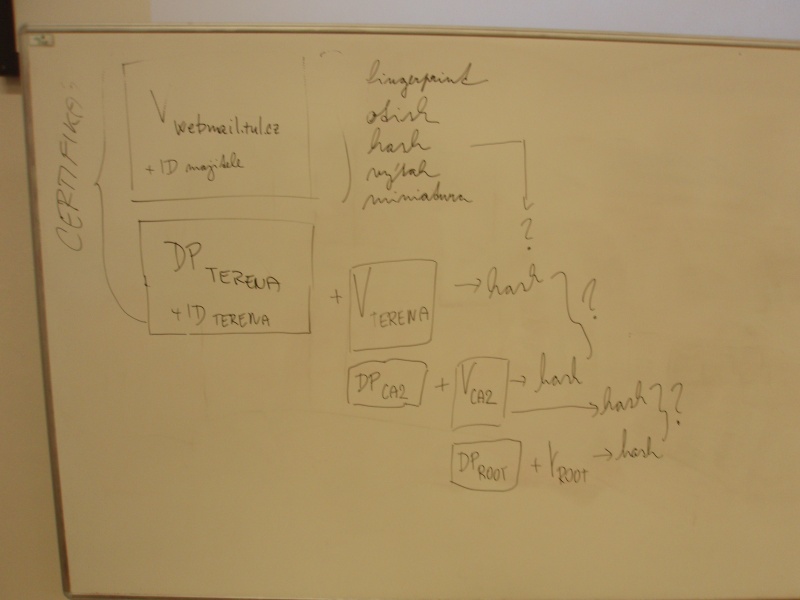 CERTIFIKÁT
V webmail.tul.cz
+ ID majitele
fingerprint
otisk
hash
výtah
miniatura
?
DP TERENA
+ ID TERENA
+ V TERENA → hash
?
DP CA2 + V CA2 → hash
→ hash
?
DP ROOT + V ROOT → hash